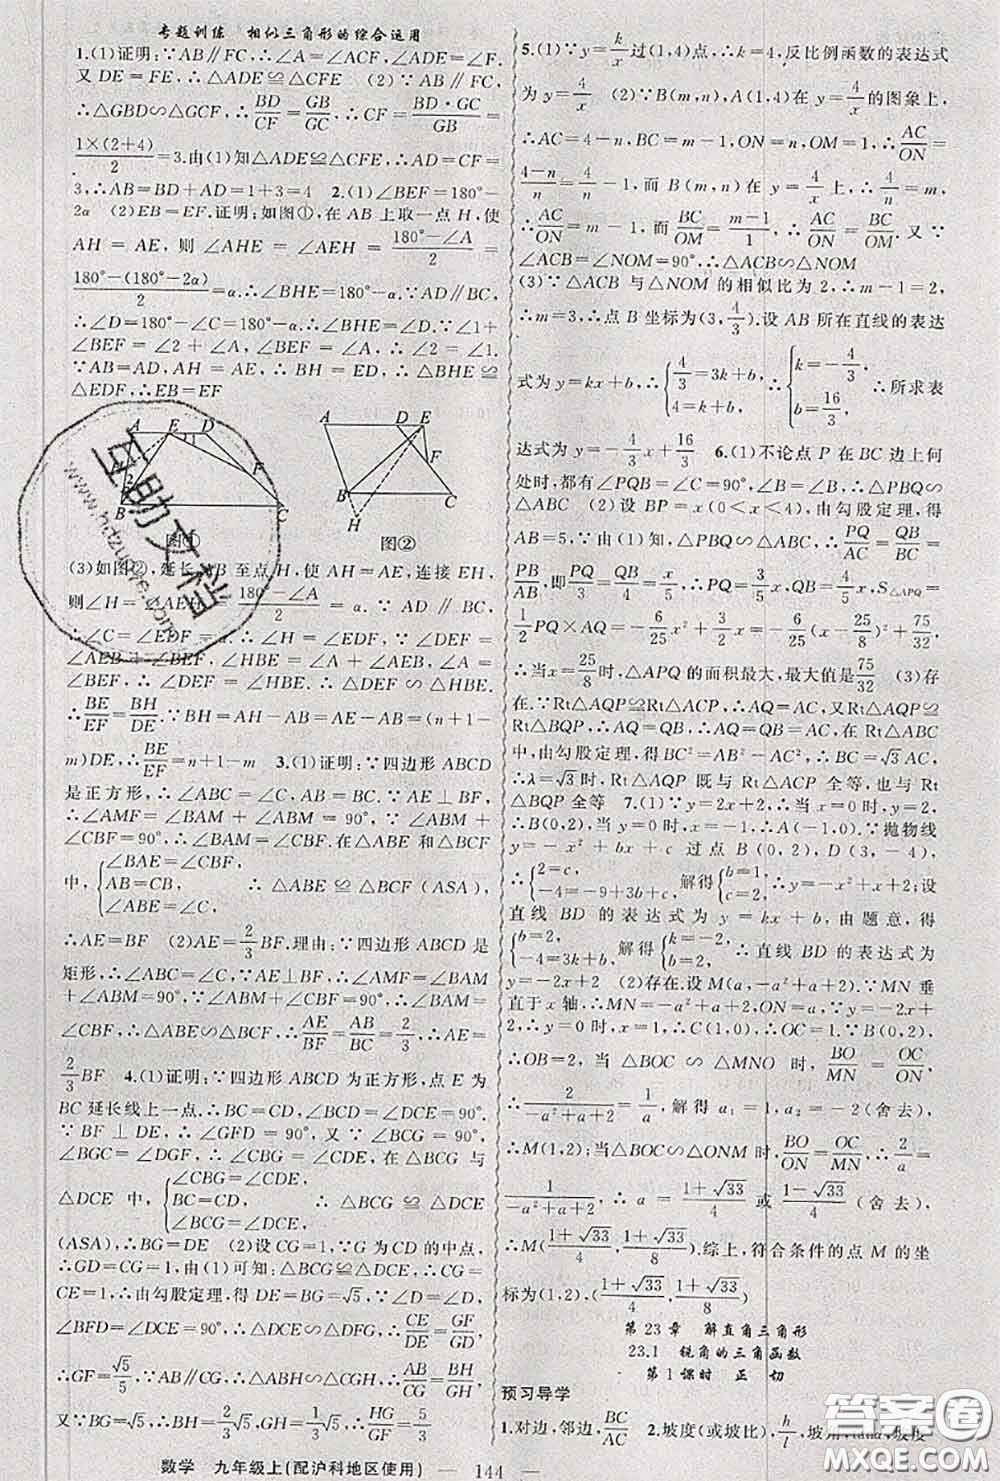 专题训练 相似三角形的综合运用
1.(1)证明:∵AB∥FC,∴∠A=∠ACF,∠ADE=∠F.
又DE=FE,∴△ADE≌△CFE (2)∵AB∥FC,
∴△GBD∽△GCF,∴BD/CF=GB/GC,∴CF=BD·GC/GB=
1×(2+4)/2=3.由(1)知△ADE≌△CFE,∴AD=CF=
3,∴AB=BD+AD=1+3=4 2.(1)∠BEF=180°-
2α (2)EB=EF.证明:如图①,在AB上取一点H,使
AH=AE,则∠AHE=∠AEH=(180°-∠A)/2=
(180°-(180°-2α))/2=α.∴∠BHE=180°-α.∵AD∥BC,
∴∠D=180°-∠C=180°-α.∴∠BHE=∠D.∵∠1+
∠BEF=∠2+∠A,∠BEF=∠A,∴∠2=∠1.
∵AB=AD,AH=AE,∴BH=ED,∴△BHE≌
△EDF,∴EB=EF
A E D F B C 图①
A D E F B C H 图②
(3)如图②,延长AB至点H,使AH=AE,连接EH,
则∠H=∠AEH=(180°-∠A)/2=α.∵AD∥BC,
∴∠C=∠EDF=α.∴∠H=∠EDF.∵∠DEF=
∠AEB+∠BEF,∠HBE=∠A+∠AEB,∠BEF=
∠A,∴∠DEF=∠HBE.∴△DEF∽△HBE,
∴BE/EF=BH/DE.∵BH=AH-AB=AE-AB=(n+1-
m)DE,∴BE/EF=n+1-m 3.(1)证明:∵四边形ABCD
是正方形,∴∠ABC=∠C,AB=BC.∵AE⊥BF,
∴∠AMF=∠BAM+∠ABM=90°,∵∠ABM+
∠CBF=90°,∴∠BAM=∠CBF.在△ABE和△BCF
中,{∠BAE=∠CBF, AB=CB, ∠ABE=∠C, ∴△ABE≌△BCF(ASA),
∴AE=BF (2)AE=2/3BF.理由:∵四边形ABCD是
矩形,∴∠ABC=∠C,∵AE⊥BF,∴∠AMF=∠BAM
+∠ABM=90°,∵∠ABM+∠CBF=90°,∴∠BAM=
∠CBF,∴△ABE∽△BCF,∴AE/BF=AB/BC=2/3,∴AE=
2/3BF 4.(1)证明:∵四边形ABCD为正方形,点E为
BC延长线上一点.∴BC=CD,∠BCG=∠DCE=90°.
∵BF⊥DE,∴∠GFD=90°,又∵∠BCG=90°,
∠BGC=∠DGF,∴∠CBG=∠CDE,在△BCG与
△DCE中,{∠CBG=∠CDE, BC=CD, ∠BCG=∠DCE, ∴△BCG≌△DCE
(ASA),∴BG=DE (2)设CG=1,∵G为CD的中点,
∴GD=CG=1,由(1)可知:△BCG≌△DCE,∴CG=
CE=1,∴由勾股定理,得DE=BG=√5,∵∠D=∠D,
∠BFD=∠DCE=90°,∴△DCE∽△DFG,∴CE/DE=GF/GD,
∴GF=√5/5,∵AB∥CG,∴△ABH∽△CGH,∴AB/CG=BH/GH=2/1,
又∵BG=√5,∴BH=2/3√5,GH=√5/3,∴HG/GF=5/3
5.(1)∵y=k/x过(1,4)点,∴k=4,反比例函数的表达式
为y=4/x (2)∵B(m,n),A(1,4)在y=4/x的图象上,
∴AC=4-n,BC=m-1,ON=n,OM=1,∴AC/ON=
(4-n)/n=4/n-1,而B(m,n)在y=4/x上,∴4/n=m,
∴AC/ON=m-1,而BC/OM=(m-1)/1,∴AC/ON=BC/OM.又∵
∠ACB=∠NOM=90°,∴△ACB∽△NOM
(3)∵△ACB与△NOM的相似比为2,∴m-1=2,
∴m=3,∴点B坐标为(3,4/3).设AB所在直线的表达
式为y=kx+b,∴{4/3=3k+b, 4=k+b, ∴{k=-4/3, b=16/3, ∴所求表
达式为y=-4/3x+16/3 6.(1)不论点P在BC边上何
处时,都有∠PQB=∠C=90°,∠B=∠B,∴△PBQ∽
△ABC (2)设BP=x(0<x<4),由勾股定理,得
AB=5,∵由(1)知,△PBQ∽△ABC,∴PQ/AC=QB/BC=
PB/AB,即PQ/3=QB/4=x/5,∴PQ=3/5x,QB=4/5x,S△APQ=
1/2PQ×AQ=-6/25x²+3/2x=-6/25(x-25/8)²+75/32,
∴当x=25/8时,△APQ的面积最大,最大值是75/32 (3)存
在.∵Rt△AQP≌Rt△ACP,∴AQ=AC,又Rt△AQP≌
Rt△BQP,∴AQ=QB,∴AQ=QB=AC,在Rt△ABC
中,由勾股定理,得BC²=AB²-AC²,∴BC=√3AC,
∴λ=√3时,Rt△AQP既与Rt△ACP全等,也与Rt
△BQP全等 7.(1)∵y=2x+2,∴当x=0时,y=2,
∴B(0,2),当y=0时,x=-1,∴A(-1,0).∵抛物线
y=-x²+bx+c过点B(0,2),D(3,-4),
∴{2=c, -4=-9+3b+c, 解得{b=1, c=2, ∴y=-x²+x+2;设
直线BD的表达式为y=kx+b,由题意,得
{b=2, -4=3k+b, 解得{k=-2, b=2, ∴直线BD的表达式为
y=-2x+2 (2)存在.设M(a,-a²+a+2).∵MN垂
直于x轴,∴MN=-a²+a+2,ON=a,∵y=-x²+x+
2,∴y=0时,x=-1或x=2,∴C(1,0),∴OC=1.∵B(0,2),
∴OB=2,当△BOC∽△MNO时,BO/MN=OC/ON,
∴2/(-a²+a+2)=1/a,解得a₁=1,a₂=-2(舍去),
∴M(1,2);当△BOC∽△ONM时,BO/ON=OC/MN,∴2/a=
1/(-a²+a+2),∴a=(1+√33)/4或(1-√33)/4(舍去),
∴M((1+√33)/4,(1+√33)/8).综上,符合条件的点M的坐
标为(1,2),((1+√33)/4,(1+√33)/8)
第23章 解直角三角形
23.1 锐角的三角函数
第1课时 正切
预习导学
1.对边,邻边,BC/AC 2.坡度(或坡比),h/l,坡角,tanα,坡度
数学 九年级上(配沪科地区使用) — 144 —
互助文档
www.hdzuoye.com
答案圈
MXQE.COM